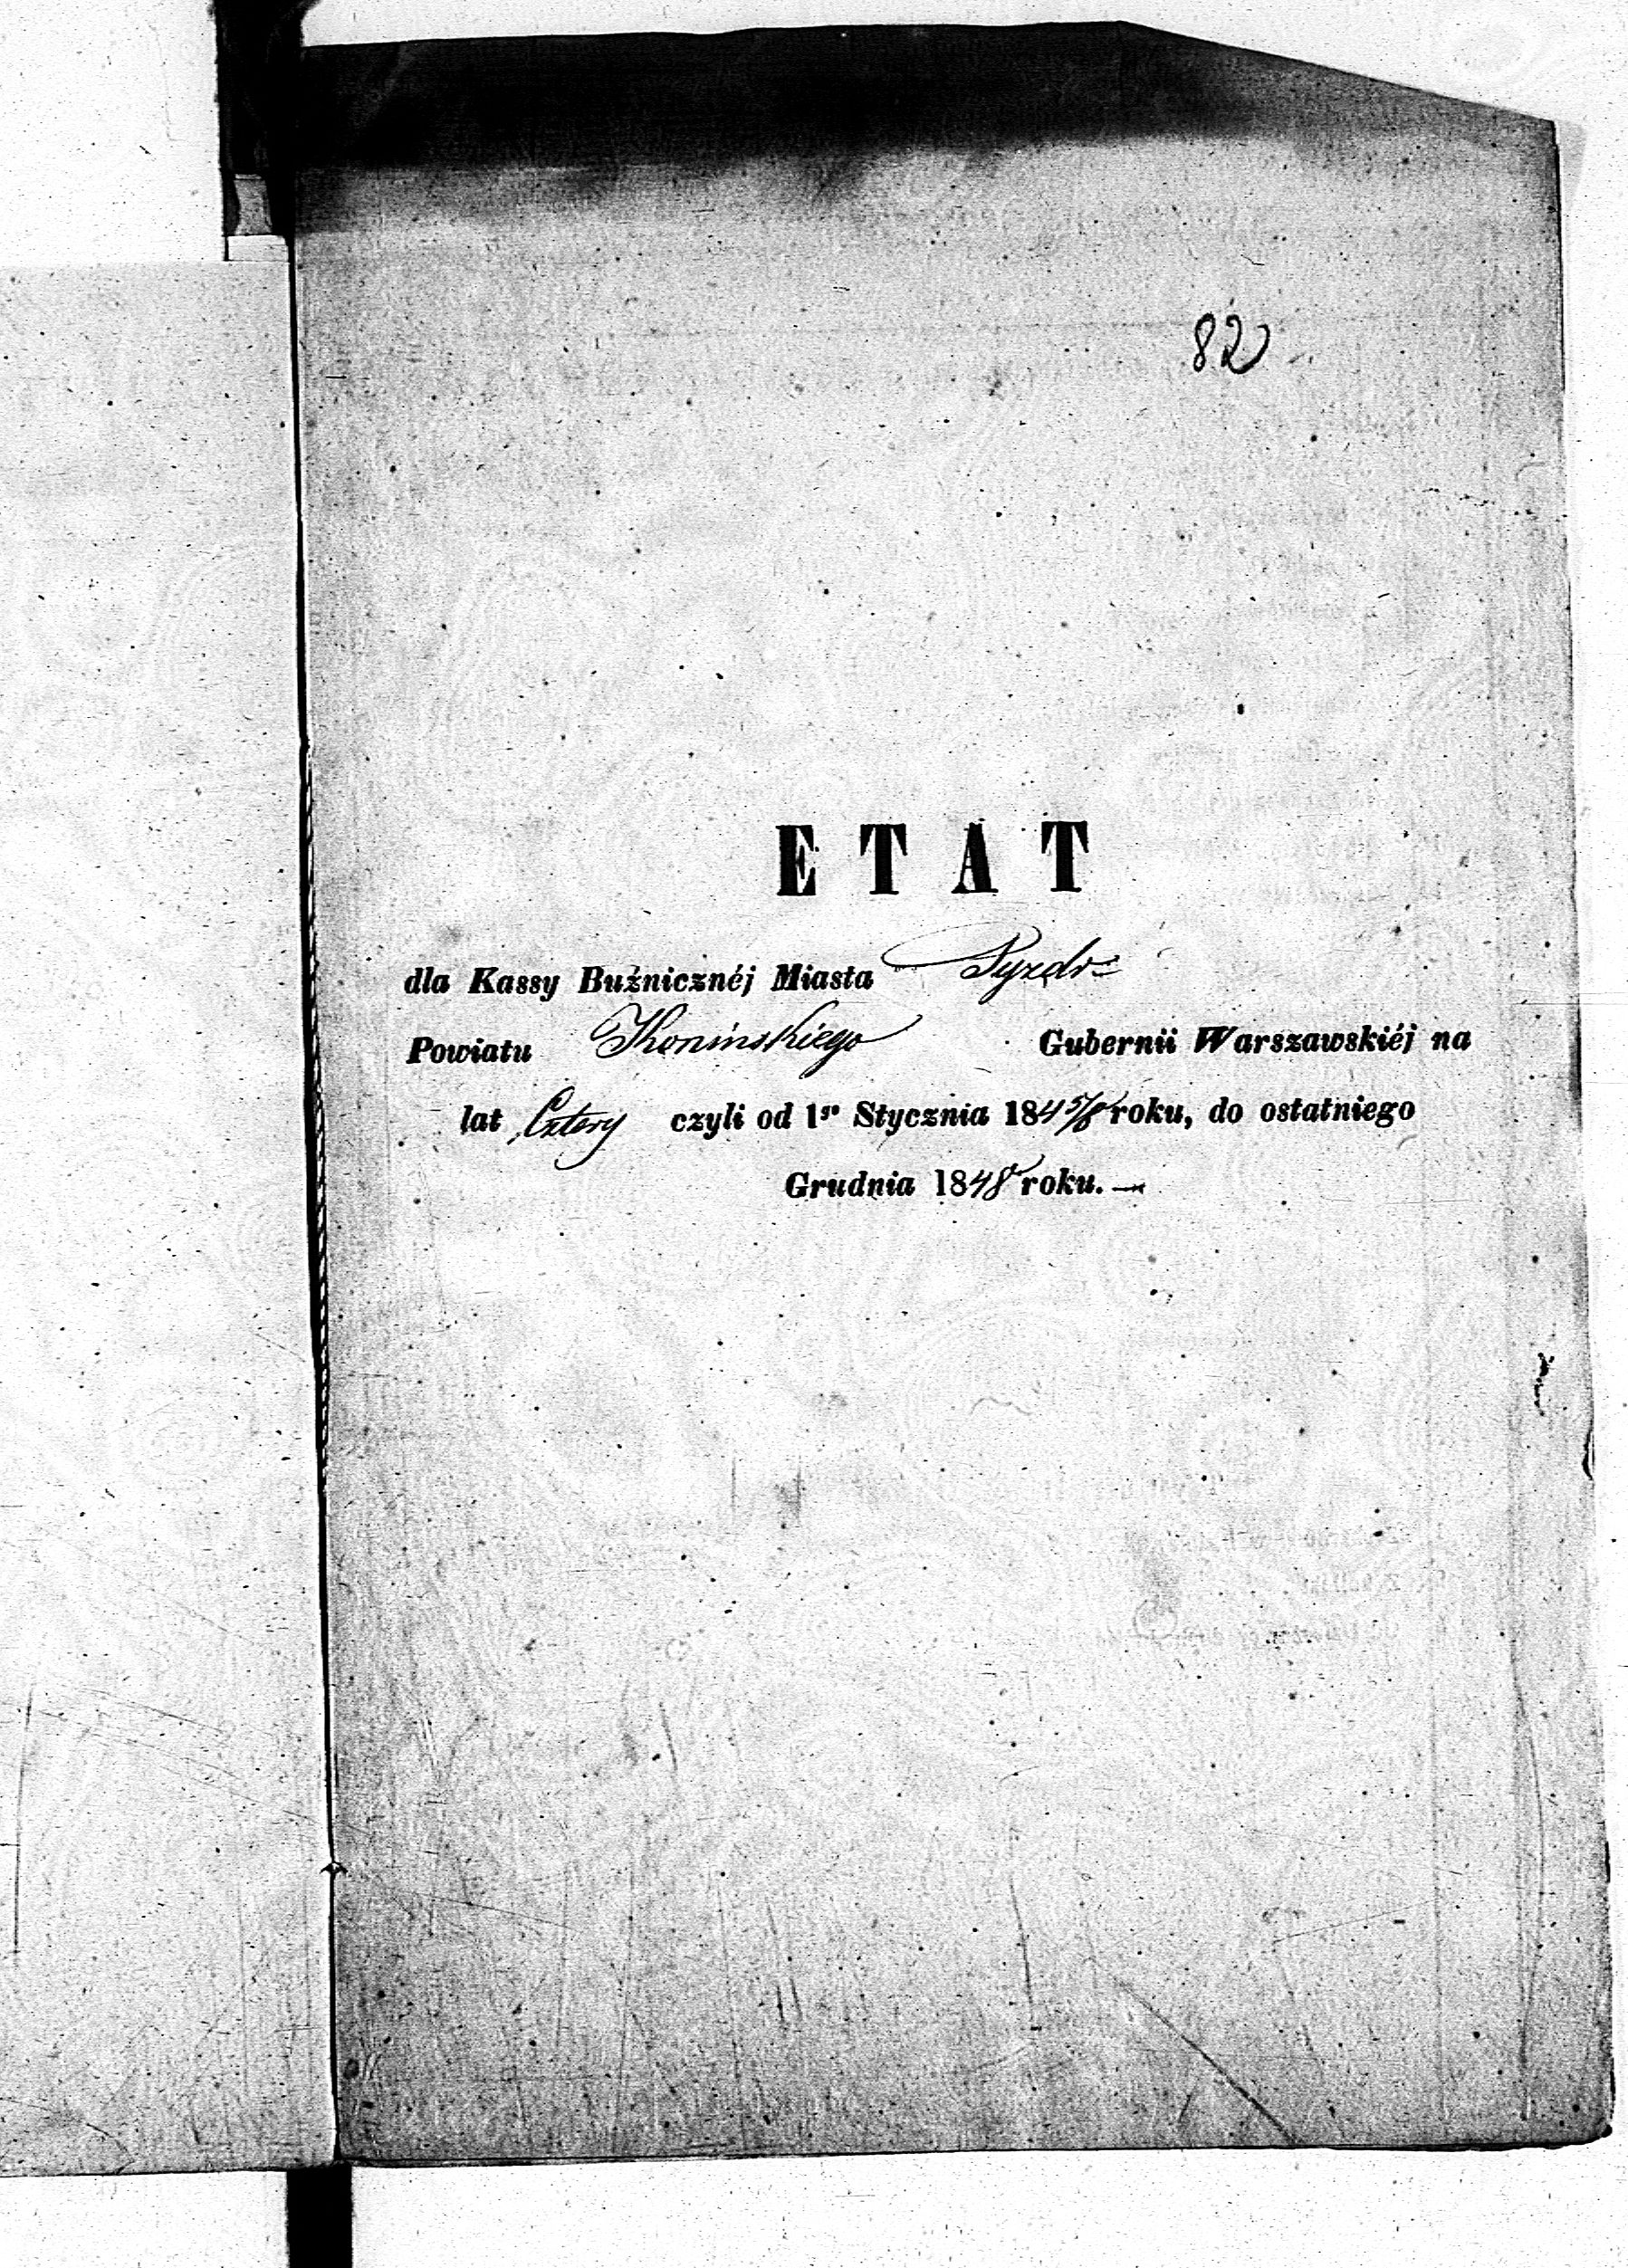 82
ETAT
dla Kassy Buźnicznéj Miasta Pyzdr
Powiatu Konińskiego Gubernii Warszawskiéj na
lat Cztery czyli od 1go Stycznia 1845/8 roku, do ostatniego
Grudnia 1848 roku.